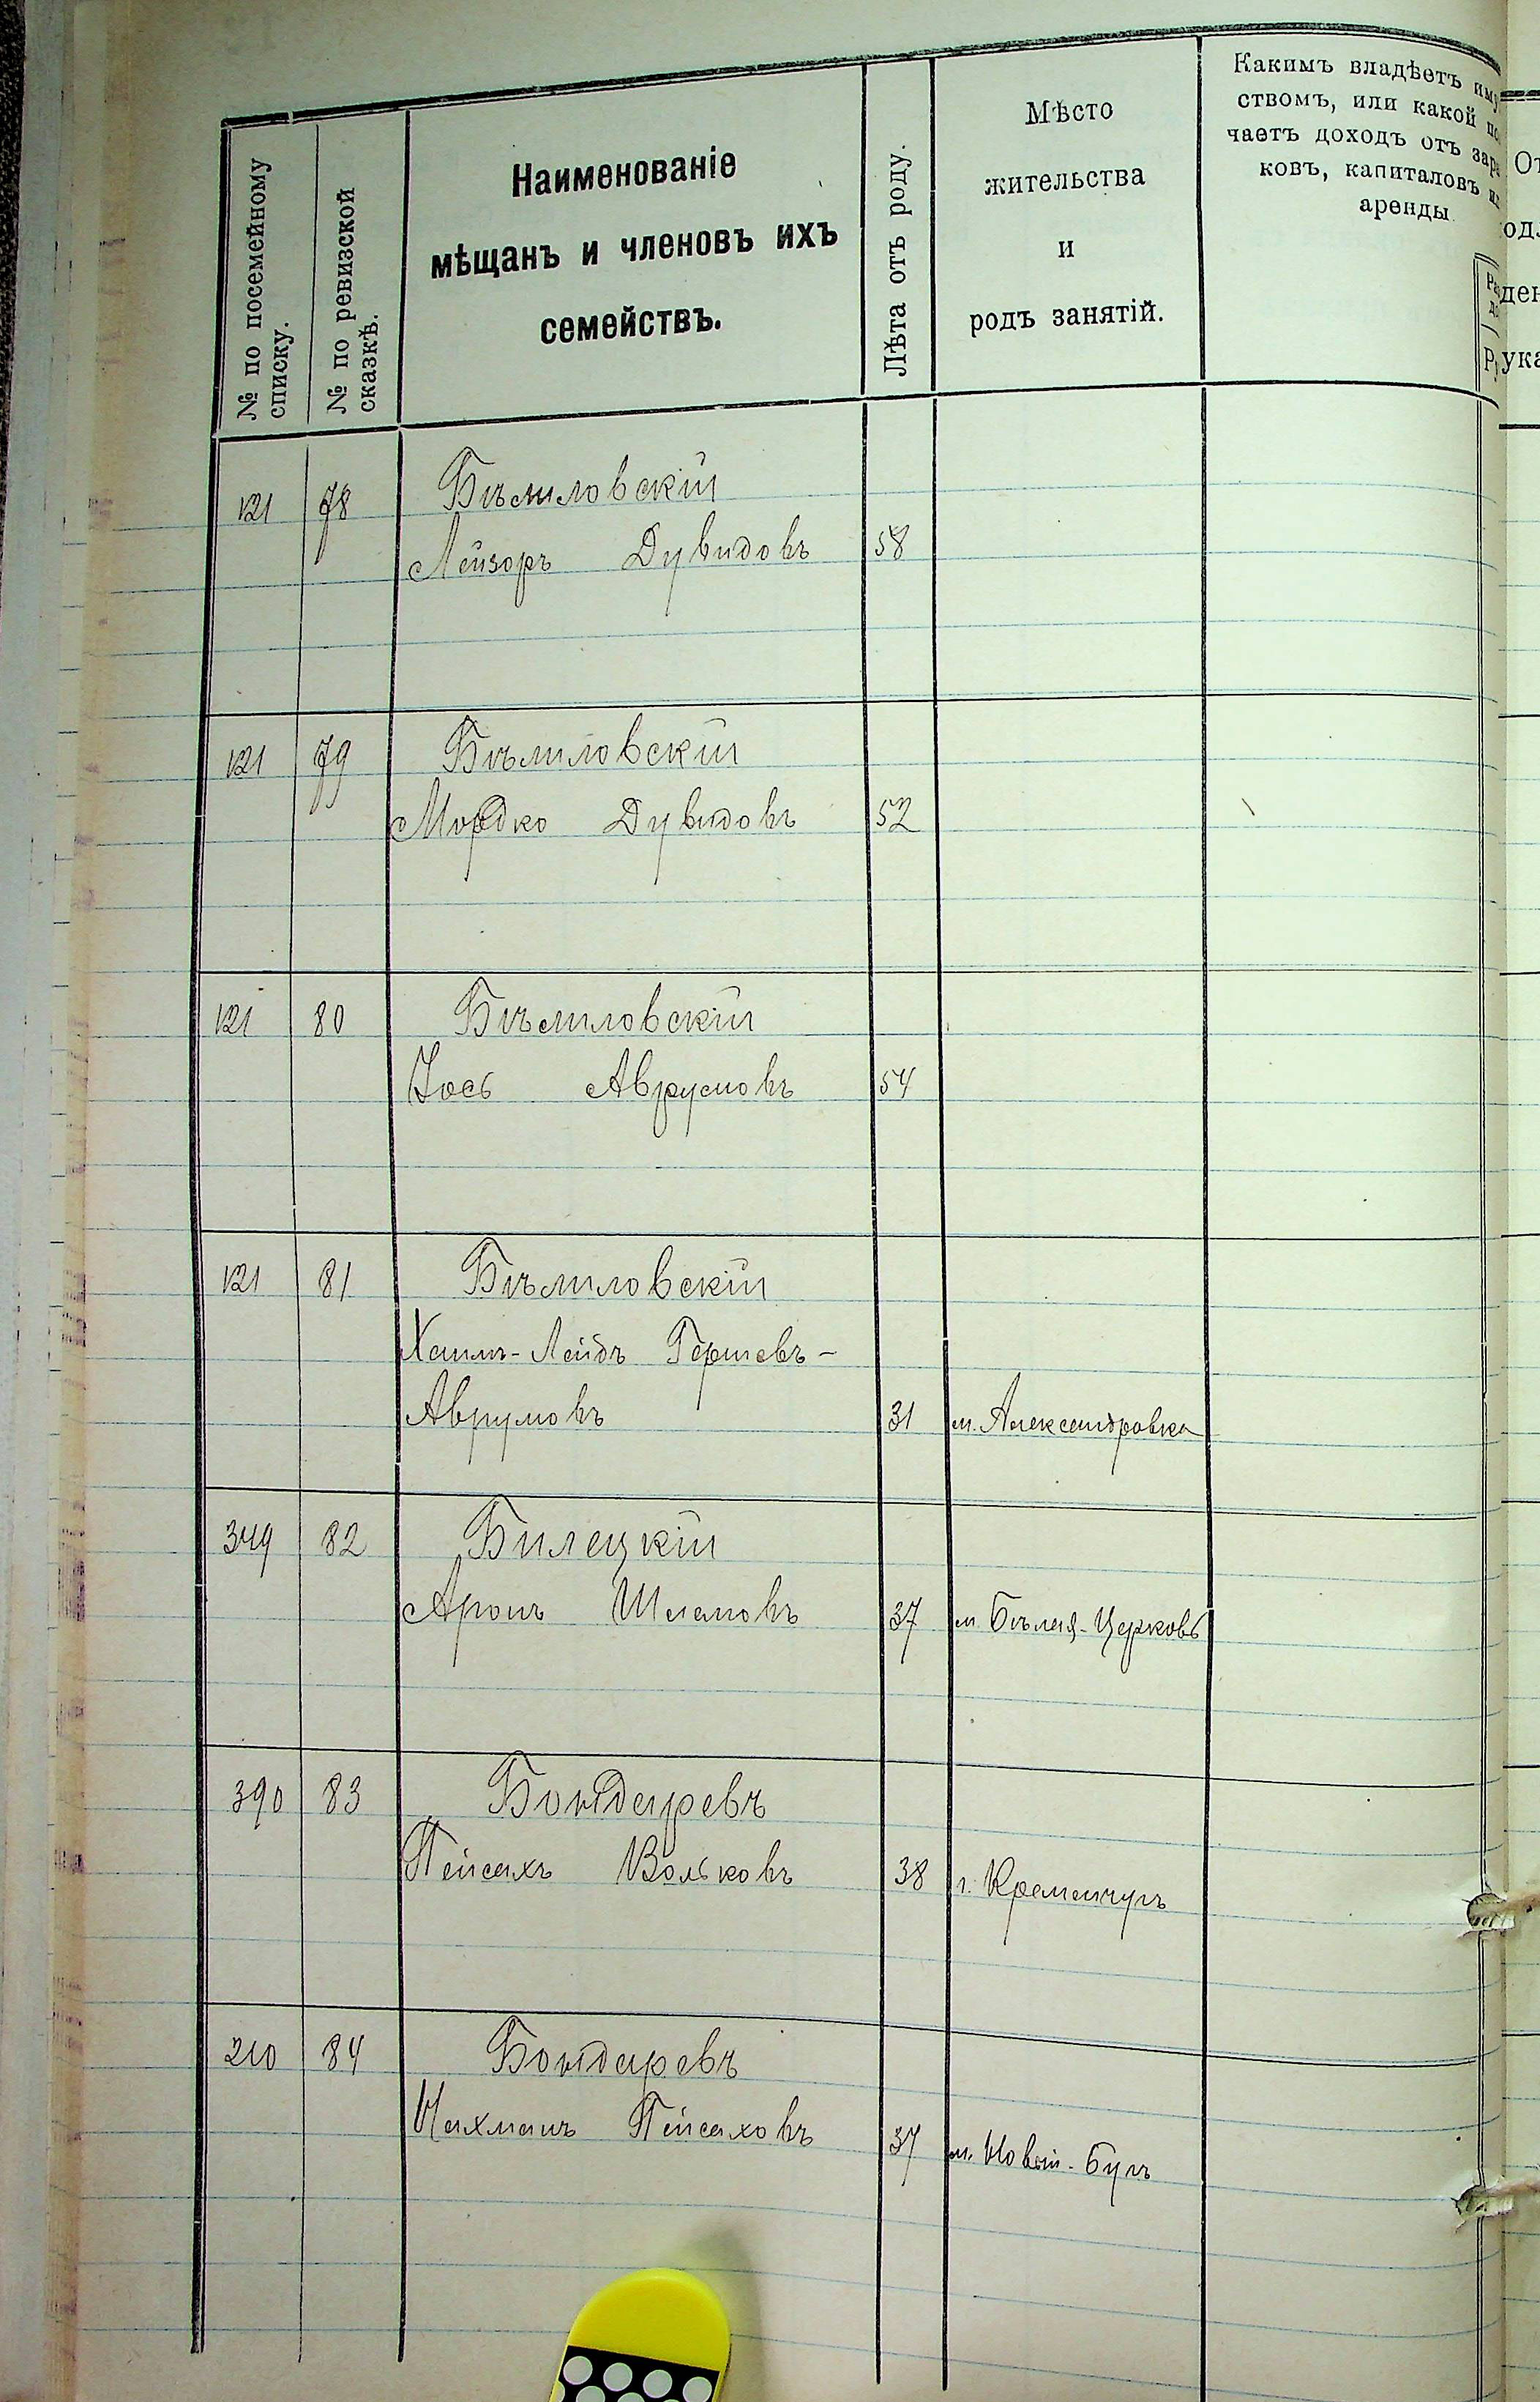 № по посемейному
списку.
№ по ревизской
сказкѣ.
Наименованіе
мѣщанъ и членовъ ихъ
семействъ.
Лѣта отъ роду.
Мѣсто
жительства
и
родъ занятій.
Какимъ владѣетъ
ствомъ, или какой
чаетъ доходъ отъ
ковъ, капиталовъ
аренды
121 78 Бѣлиловскій
Лейзоръ Дувидовъ 58
121 79 Бѣлиловскій
Мордко Дувидовъ 52
121 80 Бѣлиловскій
Іось Аврумовъ 54
121 81 Бѣлиловскій
Хаимъ-Лейбъ Гершевъ-
Аврумовъ 31 м. Александровка
349 82 Билецкій
Аронъ 37 м. Бѣлая-Церковь
390 83 Бондаревъ
Пейсахъ Вольковъ 38 г. Кременчугъ
210 84 Бондаревъ
Нахманъ Пейсаховъ 37 м. Новый-Бугъ